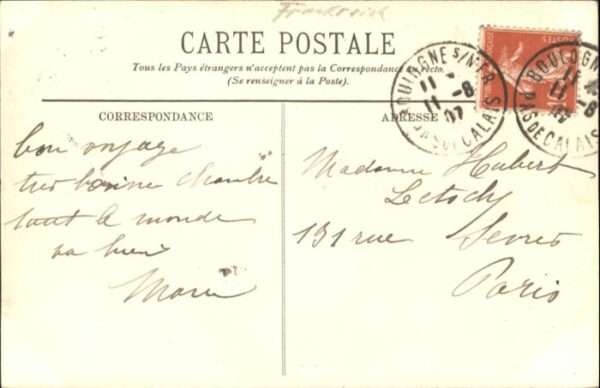 Frankreich
CARTE POSTALE
Tous les Pays étrangers n'acceptent pas la Correspondance au recto.
(Se renseigner à la Poste).
CORRESPONDANCE
bon voyage
tres bonne chambre
tout le monde
va bien
Marie
ADRESSE
Madame Hubert
131 rue Sevres
Paris
BOULOGNE S/MER
11 -8
11
07
PAS DE CALAIS
BOULOGNE
11
11 -8
07
PAS DE CALAIS